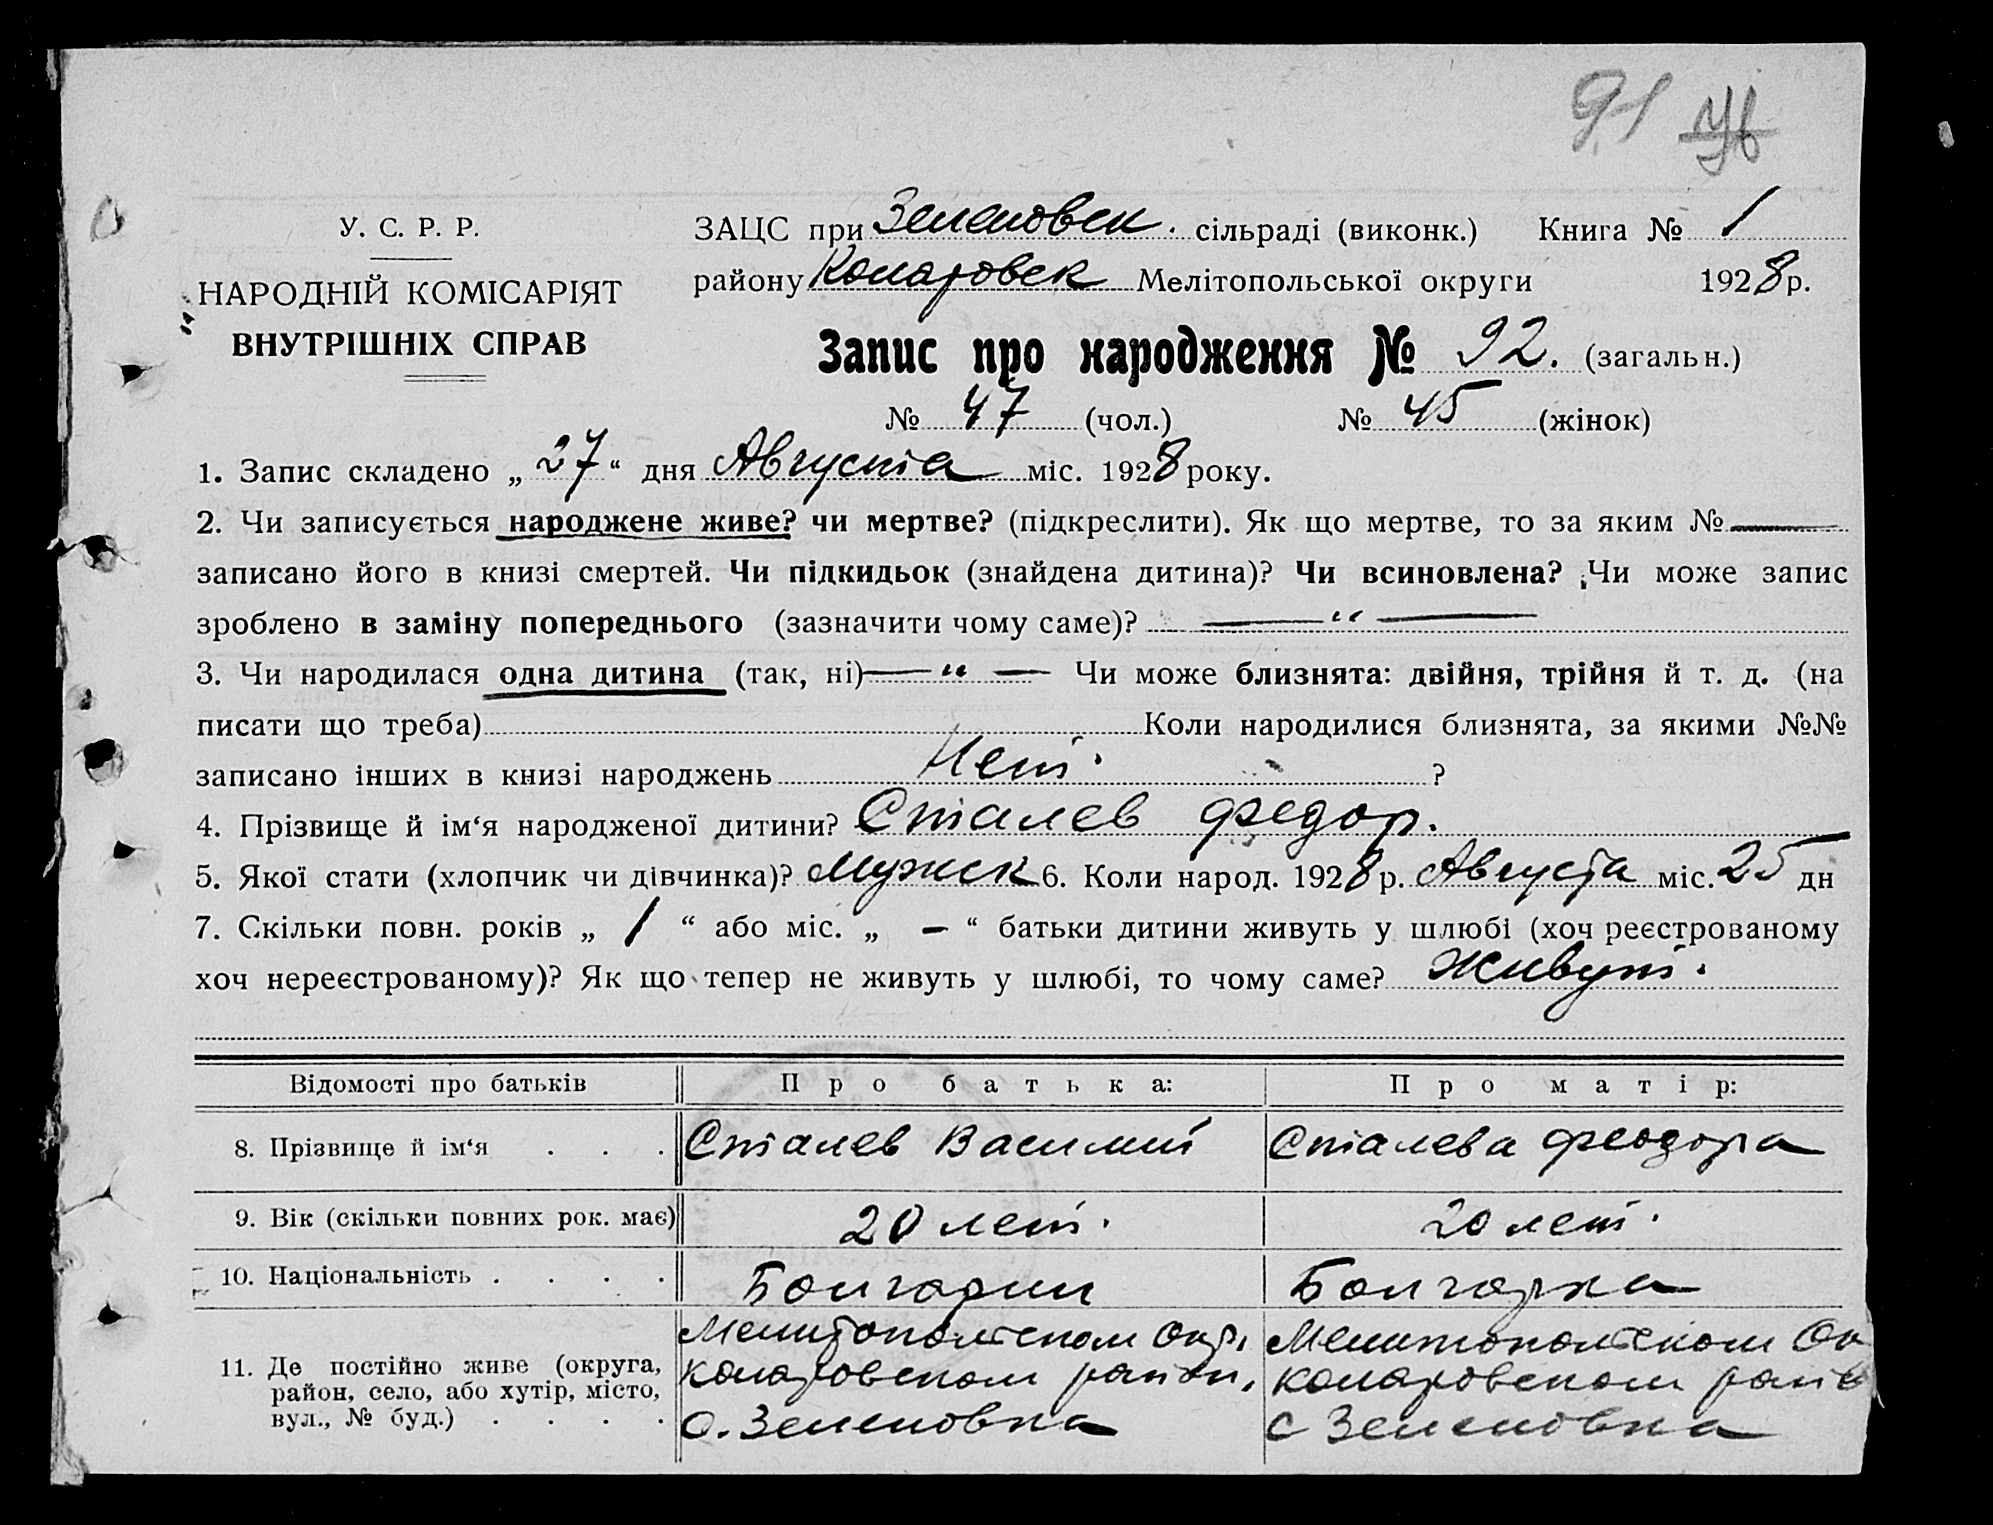 91
У. С. Р. Р.
НАРОДНІЙ КОМІСАРІЯТ
ВНУТРІШНІХ СПРАВ
ЗАЦС при Зеленовск. сільраді (виконк.) Книга № 1
району Комаровск Мелітопольської округи 1928 р.
Запис про народження № 92. (загальн.)
№ 47 (чол.) № 45 (жінок)
1. Запис складено „ 27 “ дня Августа міс. 1928 року.
2. Чи записується народжене живе? чи мертве? (підкреслити). Як що мертве, то за яким № —
записано його в книзі смертей. Чи підкидьок (знайдена дитина)? Чи всиновлена? Чи може запис
зроблено в заміну попереднього (зазначити чому саме)? — “ —
3. Чи народилася одна дитина (так, ні) — “ — Чи може близнята: двійня, трійня й т. д. (на
писати що треба) Коли народилися близнята, за якими №№
записано інших в книзі народжень Нет. ?
4. Прізвище й ім‘я народженої дитини? Сталев Федор.
5. Якої стати (хлопчик чи дівчинка)? Мужск 6. Коли народ. 1928 р. Августа міс. 25 дн
7. Скільки повн. років „ 1 “ або міс. „ – “ батьки дитини живуть у шлюбі (хоч реєстрованому
хоч нереєстрованому)? Як що тепер не живуть у шлюбі, то чому саме? Живут.
Відомості про батьків Про батька: Про матір:
8. Прізвище й ім‘я . . . Сталев Василий Сталева Феодора
9. Вік (скільки повних рок. має) 20 лет. 20 лет.
10. Національність . . . . Болгарин Болгарка
11. Де постійно живе (округа, район, село, або хутір, місто, вул., № буд.) . . . .
Мелитопольском Окр.
Комаровском район,
с. Зеленовка
Мелитопольском Ок
Комаровском райо
с Зеленовка